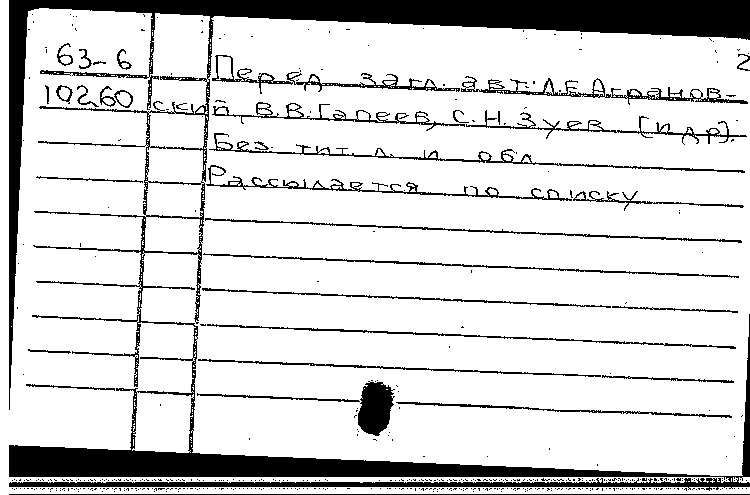 2
63-6 Перед загл. авт.: Л.Е.Агранов-
10260 ский, В.В.Гапеев, С.Н.Зуев [и др].
Без тит. л. и обл
Рассылается по списку